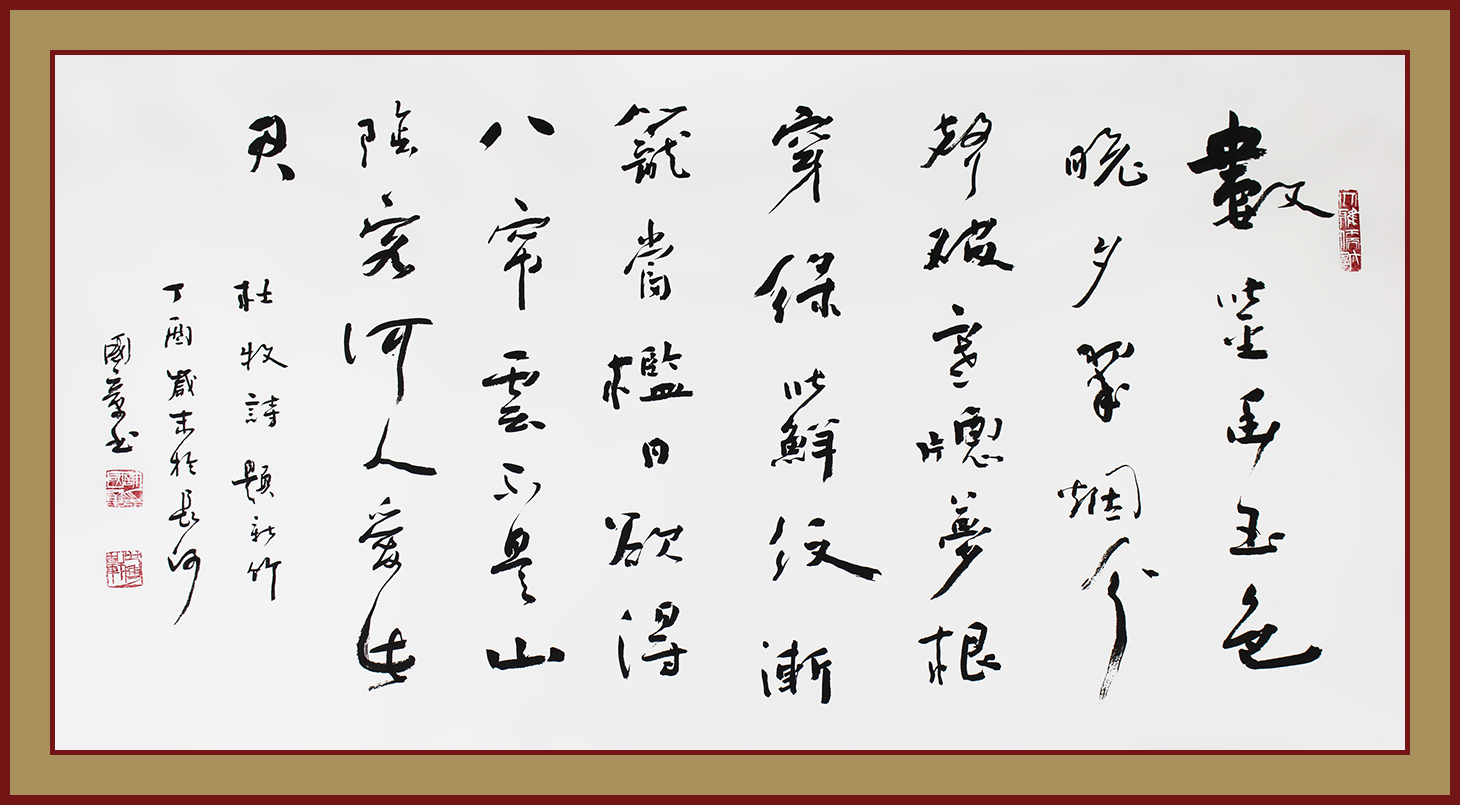 數莖幽玉色
晚夕翠烟分
聲破寒牕夢根
穿綠蘚紋漸
籠當檻日欲得
八帘雲不是山
陰客何人愛此
君
杜牧詩題新竹
丁酉歲末於長河
國章书